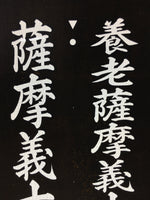 養老薩摩義士
薩摩義士